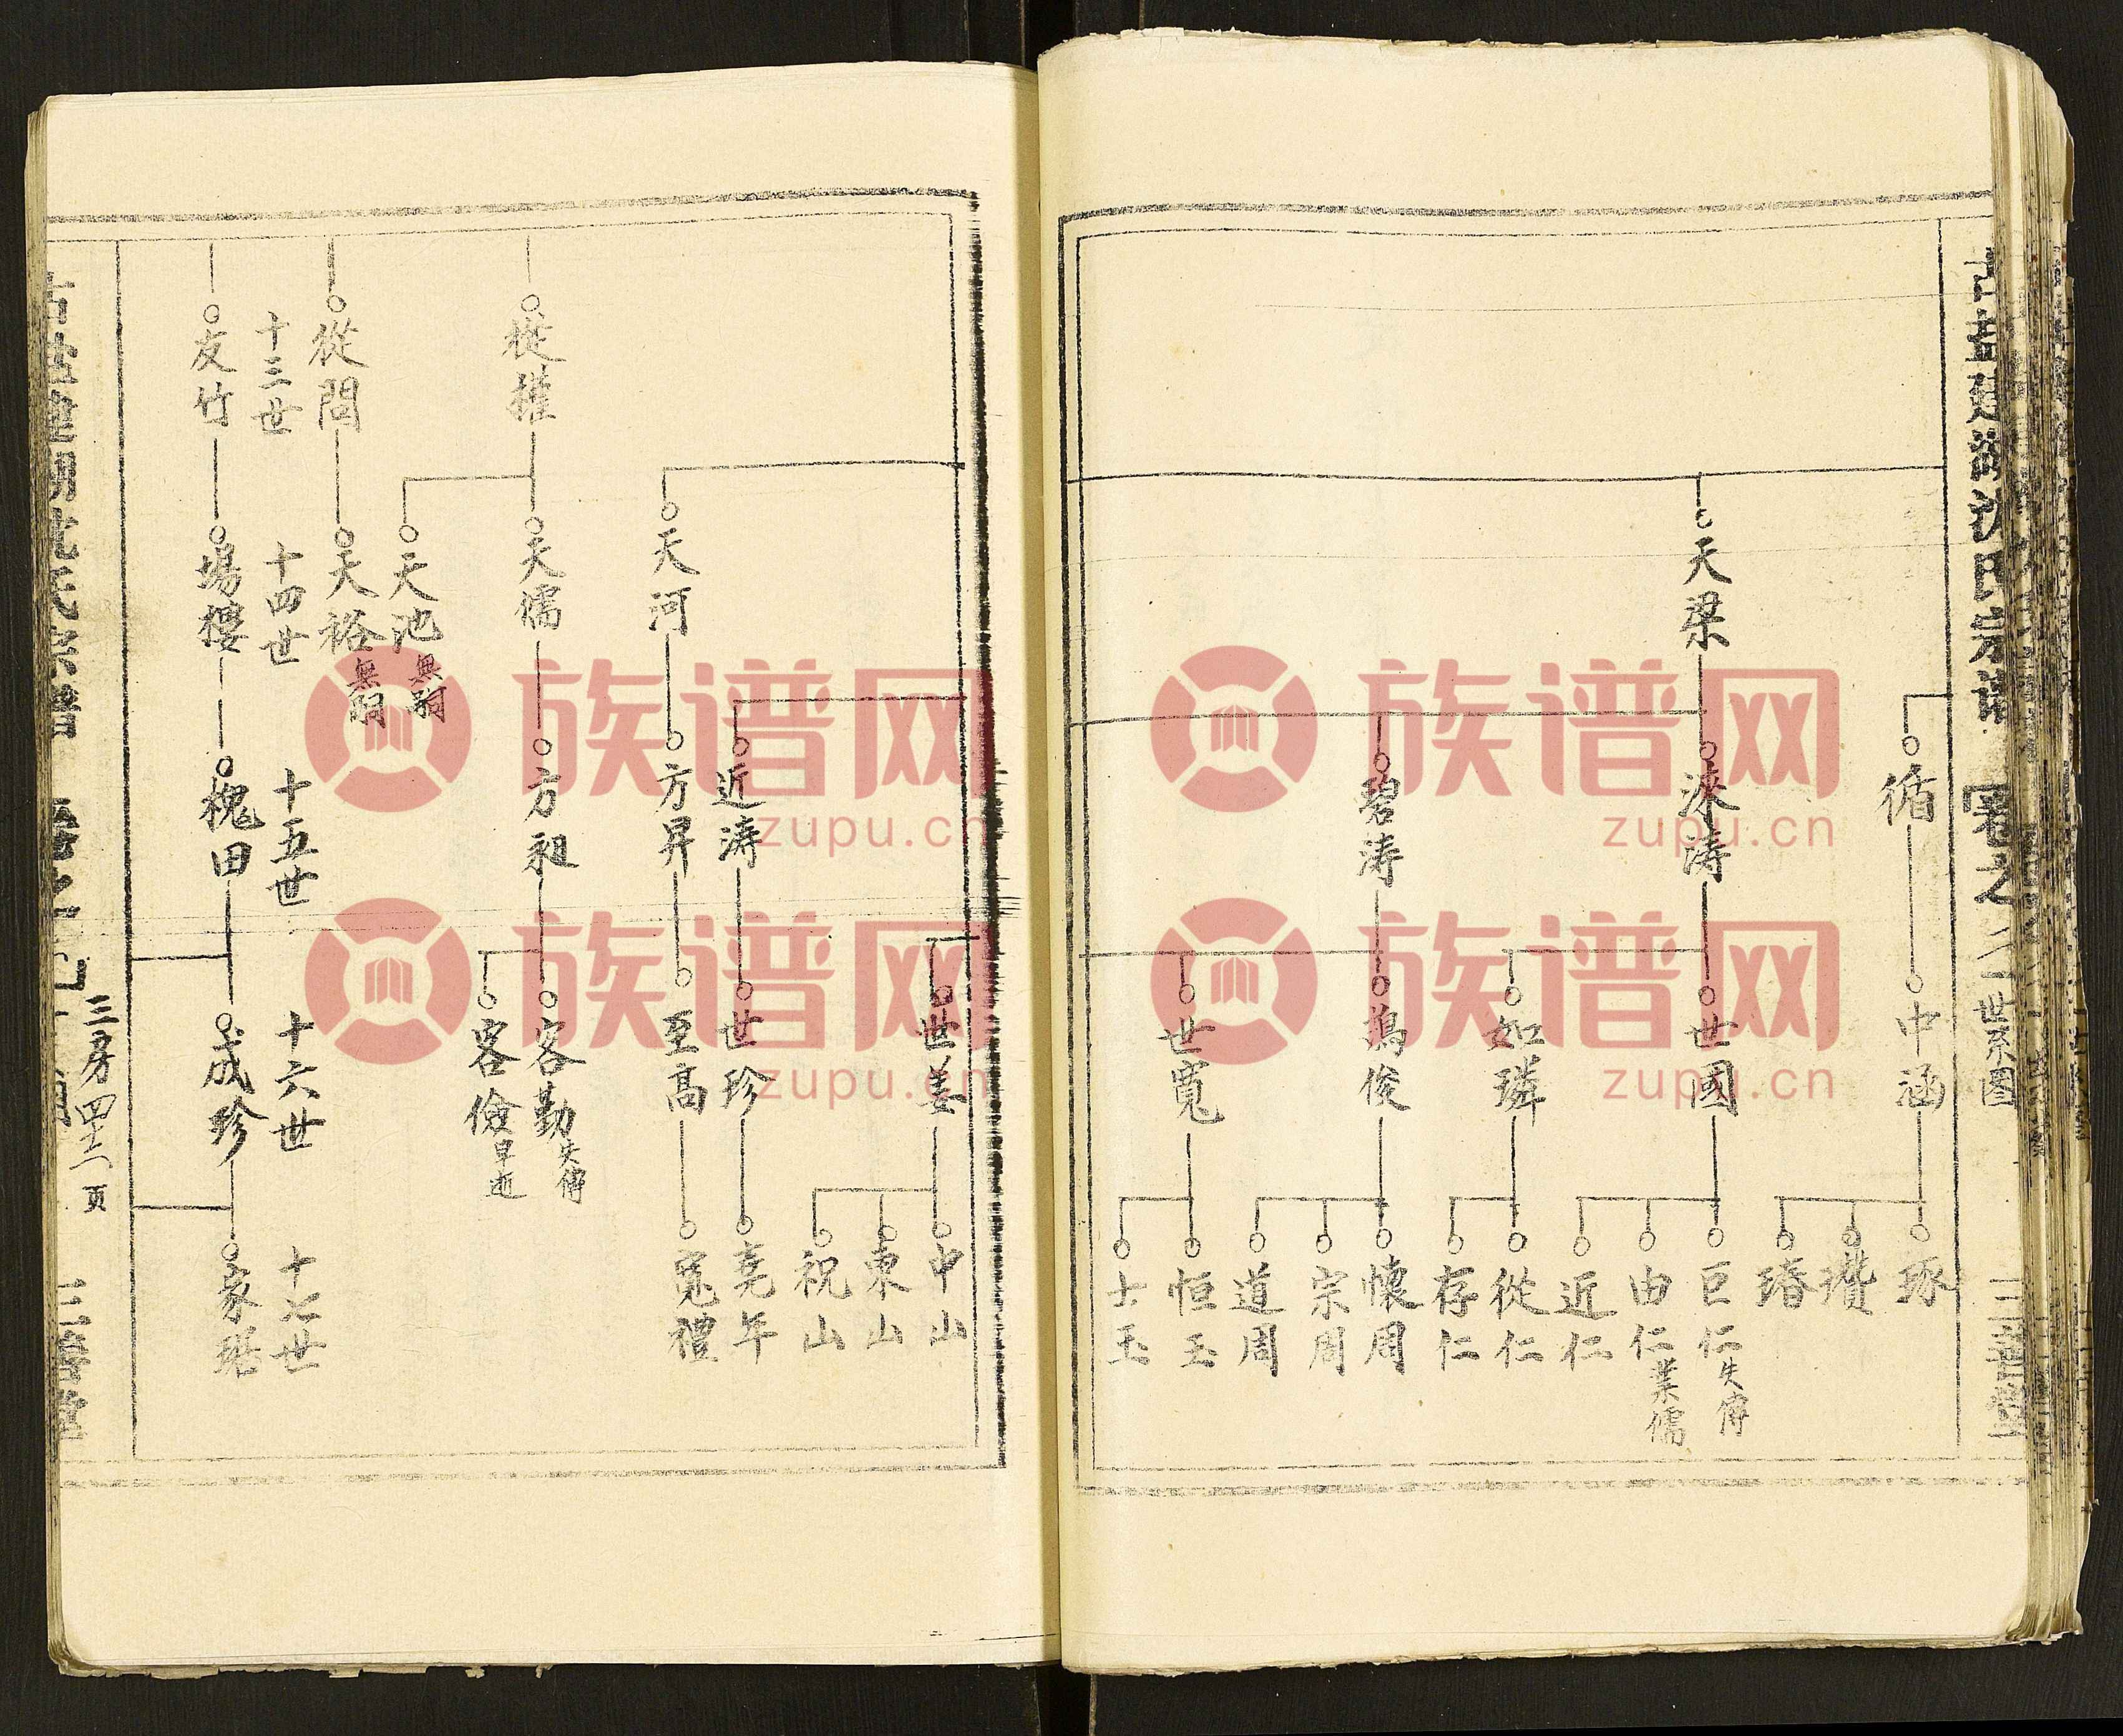 卷之二
世系图
循
中涵
琢
瓚
瑃
天梁
淶涛
世國
巨仁失傳
由仁業儒
近仁
如璘
從仁
存仁
碧涛
鴻俊
懷周
宗周
道周
世寬
恒玉
士玉
世姜
中山
東山
祝山
近涛
世珍
堯年
天河
方昇
至高
寬禮
從權
天儒
方祖
客勤失傳
客儉早逝
天池無嗣
從問
天裕無嗣
十三世
十四世
十五世
十六世
十七世
友竹
塲樓
槐田
成珍
三房
頁
族谱网
zupu.cn
族谱网
zupu.cn
族谱网
zupu.cn
族谱网
zupu.cn